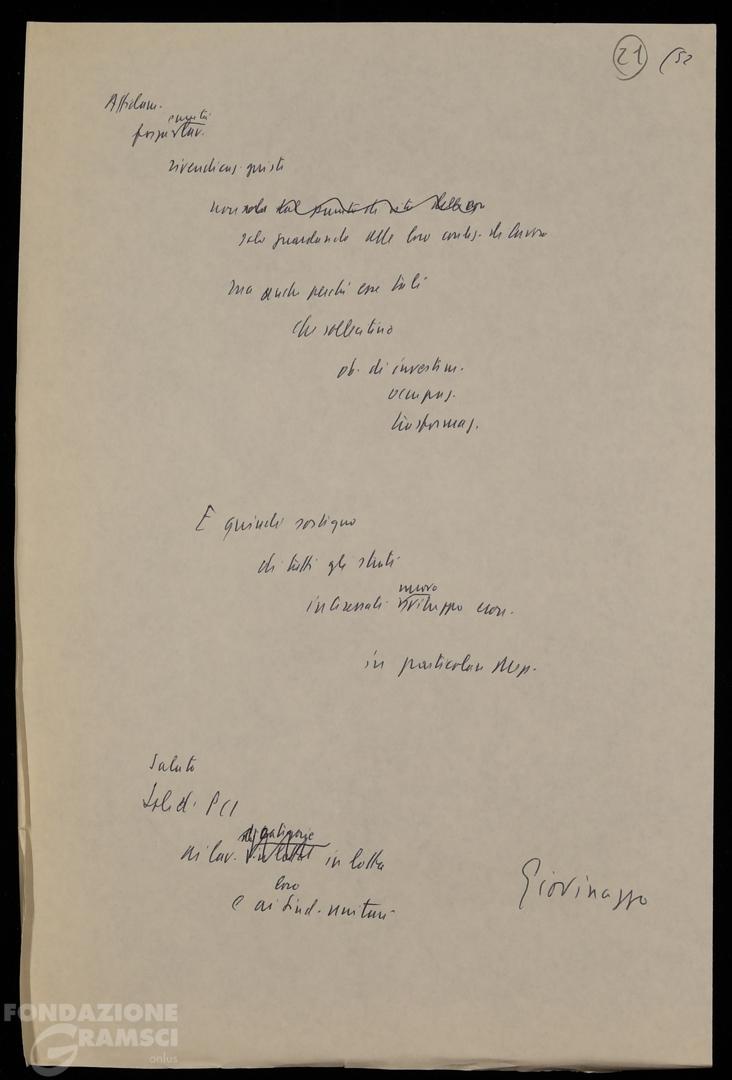 21 /52
Affidam.
unità
forza lav.
rivendicaz. giuste
non solo dal punto di vista delle
solo guardando alle loro condiz. di lavoro
ma anche perché esse tali
che sollecitino
pb. di investim.
occupaz.
trasformaz.
E quindi sostegno
di tutti gli strati
nuovo
interessati sviluppo econ.
in particolare Mezz.
Saluto
Solid. PCI
categorie
ai lav. in lotta
loro
e ai sind. unitari
Giovinazzo
FONDAZIONE
GRAMSCI
onlus